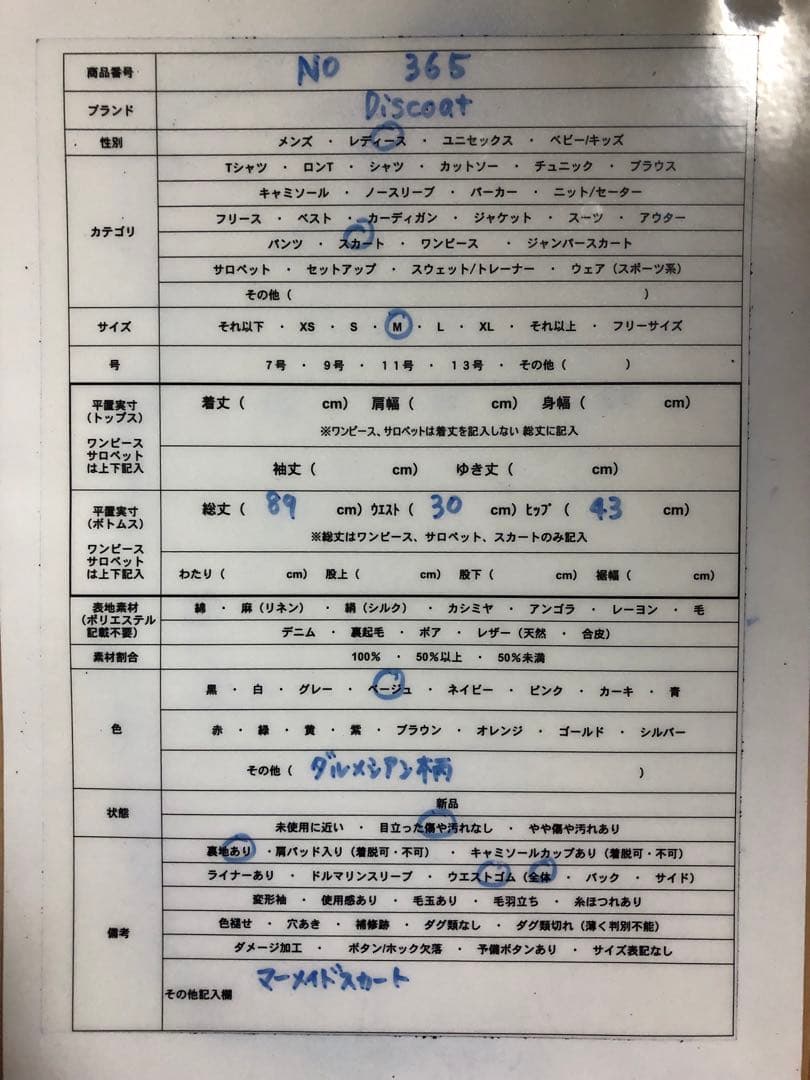 商品番号 NO 365
ブランド Discoat
性別 メンズ ・ レディース ・ ユニセックス ・ ベビー/キッズ
カテゴリ
Tシャツ ・ ロンT ・ シャツ ・ カットソー ・ チュニック ・ ブラウス
キャミソール ・ ノースリーブ ・ パーカー ・ ニット/セーター
フリース ・ ベスト ・ カーディガン ・ ジャケット ・ スーツ ・ アウター
パンツ ・ スカート ・ ワンピース ・ ジャンパースカート
サロペット ・ セットアップ ・ スウェット/トレーナー ・ ウェア（スポーツ系）
その他（ ）
サイズ それ以下 ・ XS ・ S ・ M ・ L ・ XL ・ それ以上 ・ フリーサイズ
号 7号 ・ 9号 ・ 11号 ・ 13号 ・ その他（ ）
平置実寸
（トップス）
ワンピース
サロペット
は上下記入
着丈（ cm） 肩幅（ cm） 身幅（ cm）
※ワンピース、サロペットは着丈を記入しない 総丈に記入
袖丈（ cm） ゆき丈（ cm）
平置実寸
（ボトムス）
ワンピース
サロペット
は上下記入
総丈（ 89 cm） ｳｴｽﾄ（ 30 cm） ﾋｯﾌﾟ（ 43 cm）
※総丈はワンピース、サロペット、スカートのみ記入
わたり（ cm） 股上（ cm） 股下（ cm） 裾幅（ cm）
表地素材
（ポリエステル
記載不要）
綿 ・ 麻（リネン） ・ 絹（シルク） ・ カシミヤ ・ アンゴラ ・ レーヨン ・ 毛
デニム ・ 裏起毛 ・ ボア ・ レザー（天然 ・ 合皮）
素材割合 100% ・ 50%以上 ・ 50%未満
色
黒 ・ 白 ・ グレー ・ ベージュ ・ ネイビー ・ ピンク ・ カーキ ・ 青
赤 ・ 緑 ・ 黄 ・ 紫 ・ ブラウン ・ オレンジ ・ ゴールド ・ シルバー
その他（ ダルメシアン柄 ）
状態
新品
未使用に近い ・ 目立った傷や汚れなし ・ やや傷や汚れあり
備考
裏地あり ・肩パッド入り（着脱可・不可） ・ キャミソールカップあり（着脱可・不可）
ライナーあり ・ ドルマリンスリーブ ・ ウエストゴム（全体 ・ バック ・ サイド）
変形袖 ・ 使用感あり ・ 毛玉あり ・ 毛羽立ち ・ 糸ほつれあり
色褪せ ・ 穴あき ・ 補修跡 ・ タグ類なし ・ タグ類切れ（薄く判別不能）
ダメージ加工 ・ ボタン/ホック欠落 ・ 予備ボタンあり ・ サイズ表記なし
その他記入欄 マーメイドスカート